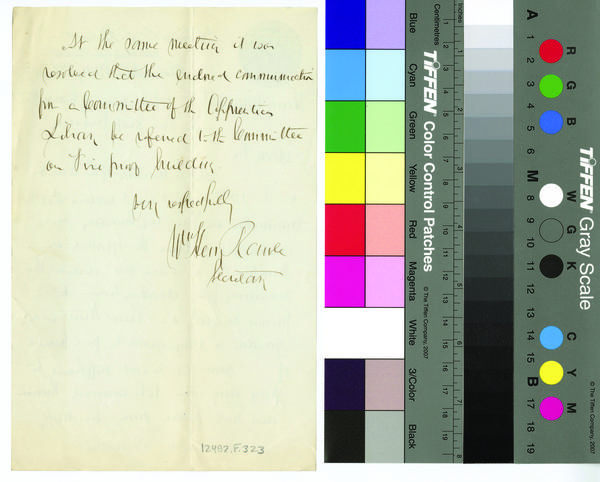 At the same meeting it was
resolved that the enclosed communication
from a Committee of the Apprentices
Library be referred to the Committee
on Fire proof building.
Very respectfully
Wm Henry Rawle
Secretary
12492.F.323
Blue
Cyan
Green
Yellow
Red
Magenta
White
3/Color
Black
TIFFEN Color Control Patches
© The Tiffen Company, 2007
Centimetres
Inches
1
2
3
4
5
6
7
8
9
10
11
12
13
14
15
16
17
18
19
1
2
3
4
5
6
7
8
A
1
2
3
4
5
6
M
8
9
10
11
12
13
14
15
B
17
18
19
R
G
B
W
G
K
C
Y
M
TIFFEN Gray Scale
© The Tiffen Company, 2007